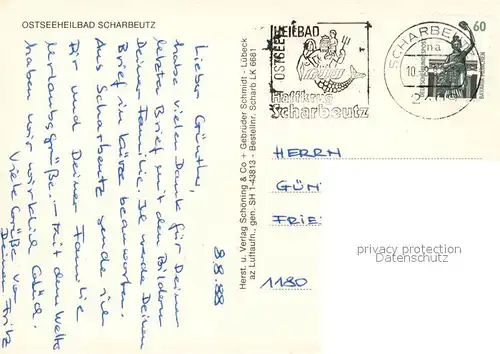 OSTSEEHEILBAD SCHARBEUTZ
8.8.88
Lieber Günther,
habe vielen Dank für Deinen
letzten Brief mit den Bildern
Deiner Familie. Ich werde Deinen
Brief in Kürze beantworten.
Aus Scharbeutz sende ich
Dir und Deiner Familie
Urlaubsgrüße. - Mit dem Wetter
haben wir wirklich Glück.
Viele Grüße von
Deinem Fritz
Herst. u. Verlag Schöning & Co + Gebrüder Schmidt - Lübeck
az Luftaufn., gen. SH 1-43813 - Bestellnr. Scharb LK 6681
OSTSEE
HEILBAD
Haffkrug
Scharbeutz
SCHARBE
na
10.
60
HERRN
GÜN
FRIE
1180
privacy protection
Datenschutz